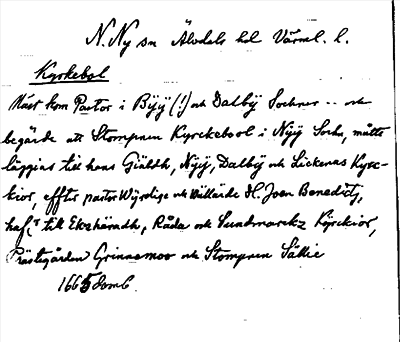 N. Ny sn Älvdals hd Värml. l.
Kyrkebol
Näst kom Pastor i Bÿÿ (!) och Dalbÿ Sochner -- och
begärde att Stompnen Kyrckebool i Nÿÿ Sochn, måtte
läggias till hans Giäldh, Nÿÿ, Dalbÿ och Lickenas Kyrc-
kior, effter pastor Wyrdige och Wällärde H. Joen Benedictj,
haf.r till Ekshäradh, Råda och Sundmarckz Kÿrckior,
Prästegården Grinnemoo och Stompnen Sällie
1665 Domb.